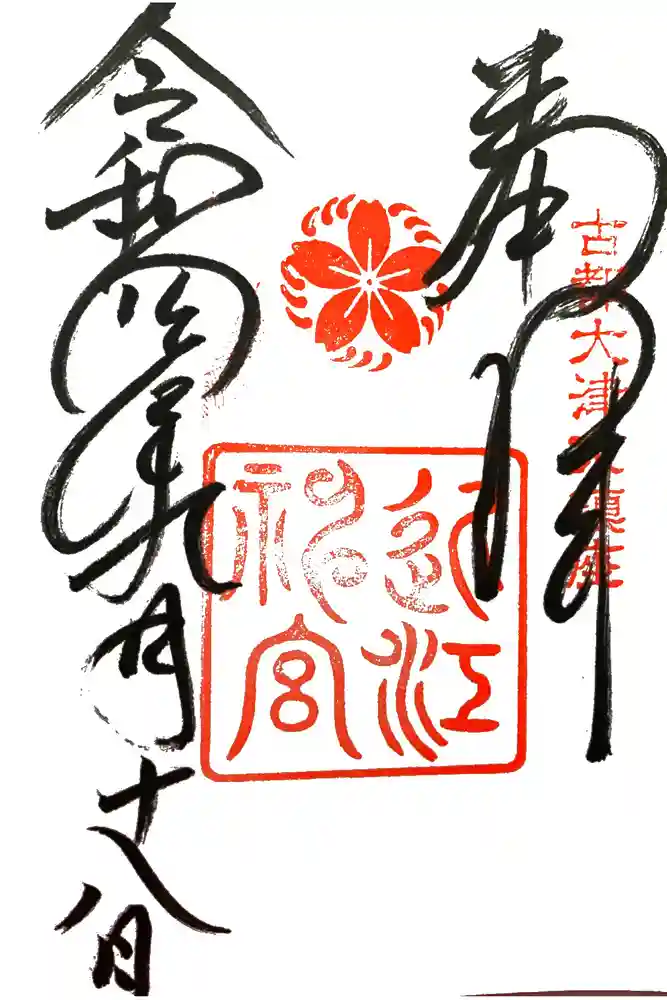 奉拝
古都大津
近江神宮
令和四年九月十八日